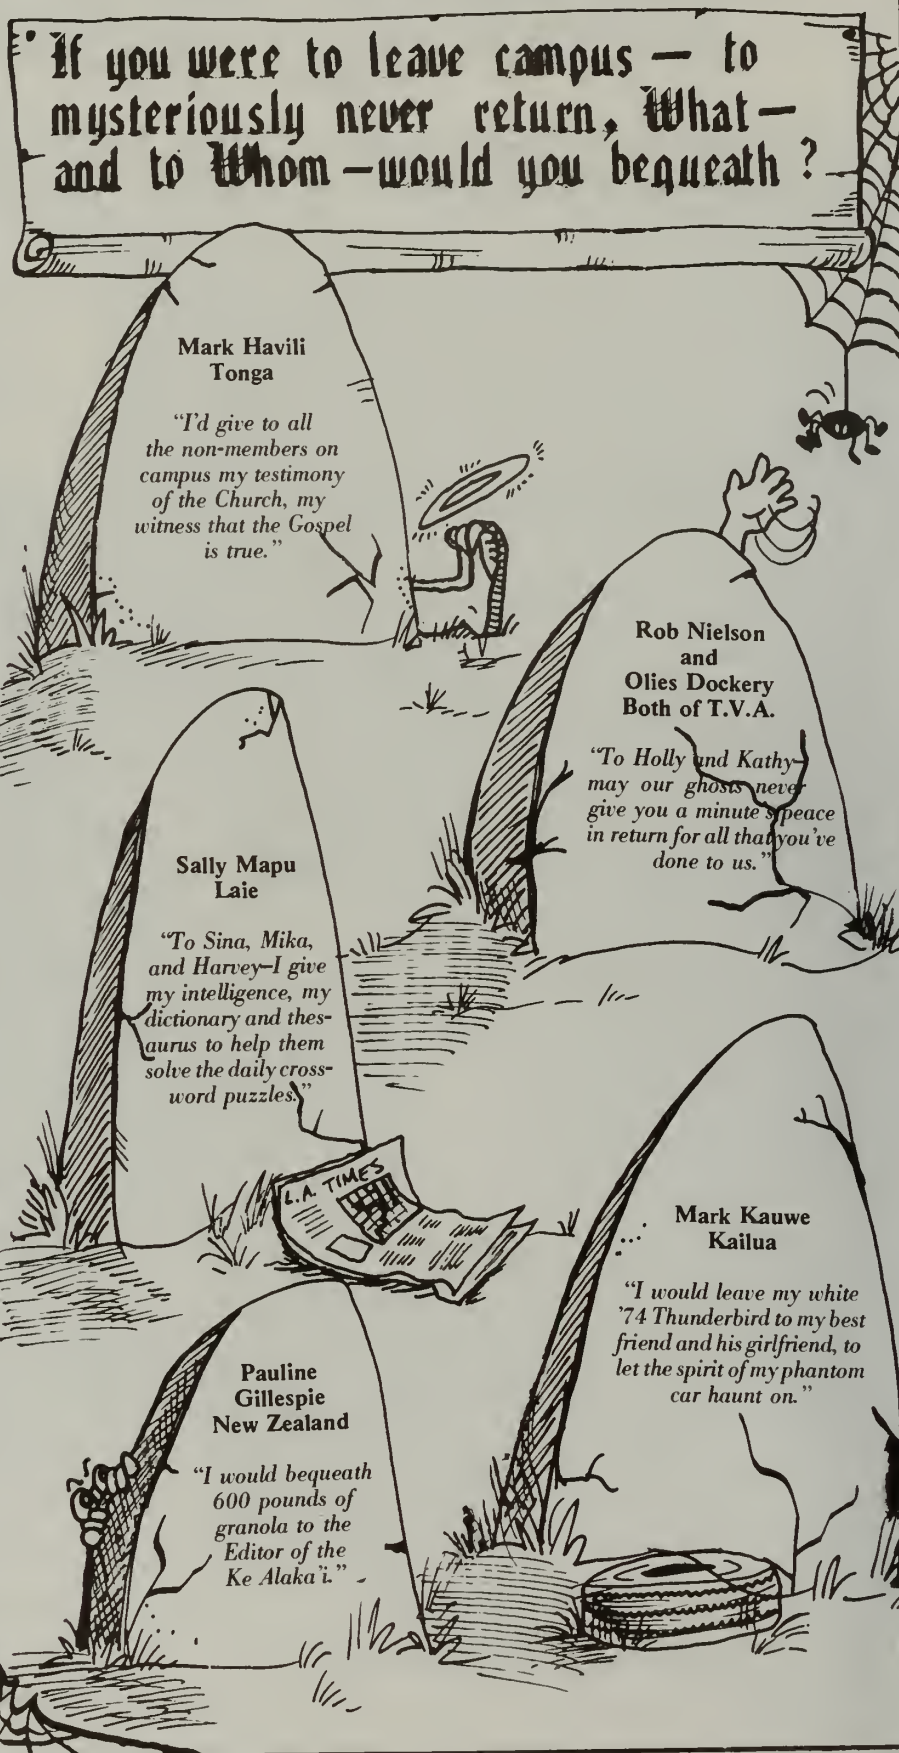 If you were to leave campus — to
mysteriously never return, What—
and to Whom—would you bequeath ?
Mark Havili
Tonga
"I'd give to all
the non-members on
campus my testimony
of the Church, my
witness that the Gospel
is true."
Rob Nielson
and
Olies Dockery
Both of T.V.A.
"To Holly and Kathy—
may our ghosts never
give you a minute's peace
in return for all that you've
done to us."
Sally Mapu
Laie
"To Sina, Mika,
and Harvey—I give
my intelligence, my
dictionary and thes-
aurus to help them
solve the daily cross-
word puzzles."
L.A. TIMES
Mark Kauwe
Kailua
"I would leave my white
'74 Thunderbird to my best
friend and his girlfriend, to
let the spirit of my phantom
car haunt on."
Pauline
Gillespie
New Zealand
"I would bequeath
600 pounds of
granola to the
Editor of the
Ke Alaka'i."